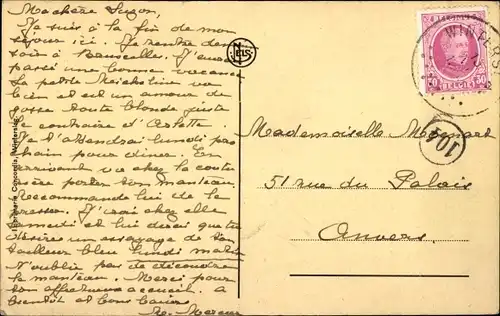 Ma chère Suzon,
Je suis à la fin de mon
séjour ici. Je rentre demain
soir à Bruxelles. J'ai
passé une bonne vacance
La petite va
bien et est un amour de
gosse toute blonde juste
le contraire d'Arlette
Je t'attendrai lundi pro
chain pour dîner. En
arrivant va chez la coutu
rière porter ton manteau.
Recommande lui de le
presser. J'irai chez elle
samedi et lui dirai que tu
désires un essayage de ton
tailleur bleu lundi matin
N'oublie pas de découdre
le manteau. Merci pour
ton affectueux accueil. à
bientôt et bons baisers
M.
NELS
Imprimerie Concordia,
BELGIË
30 30
104
Mademoiselle
51 rue du Palais
Anvers